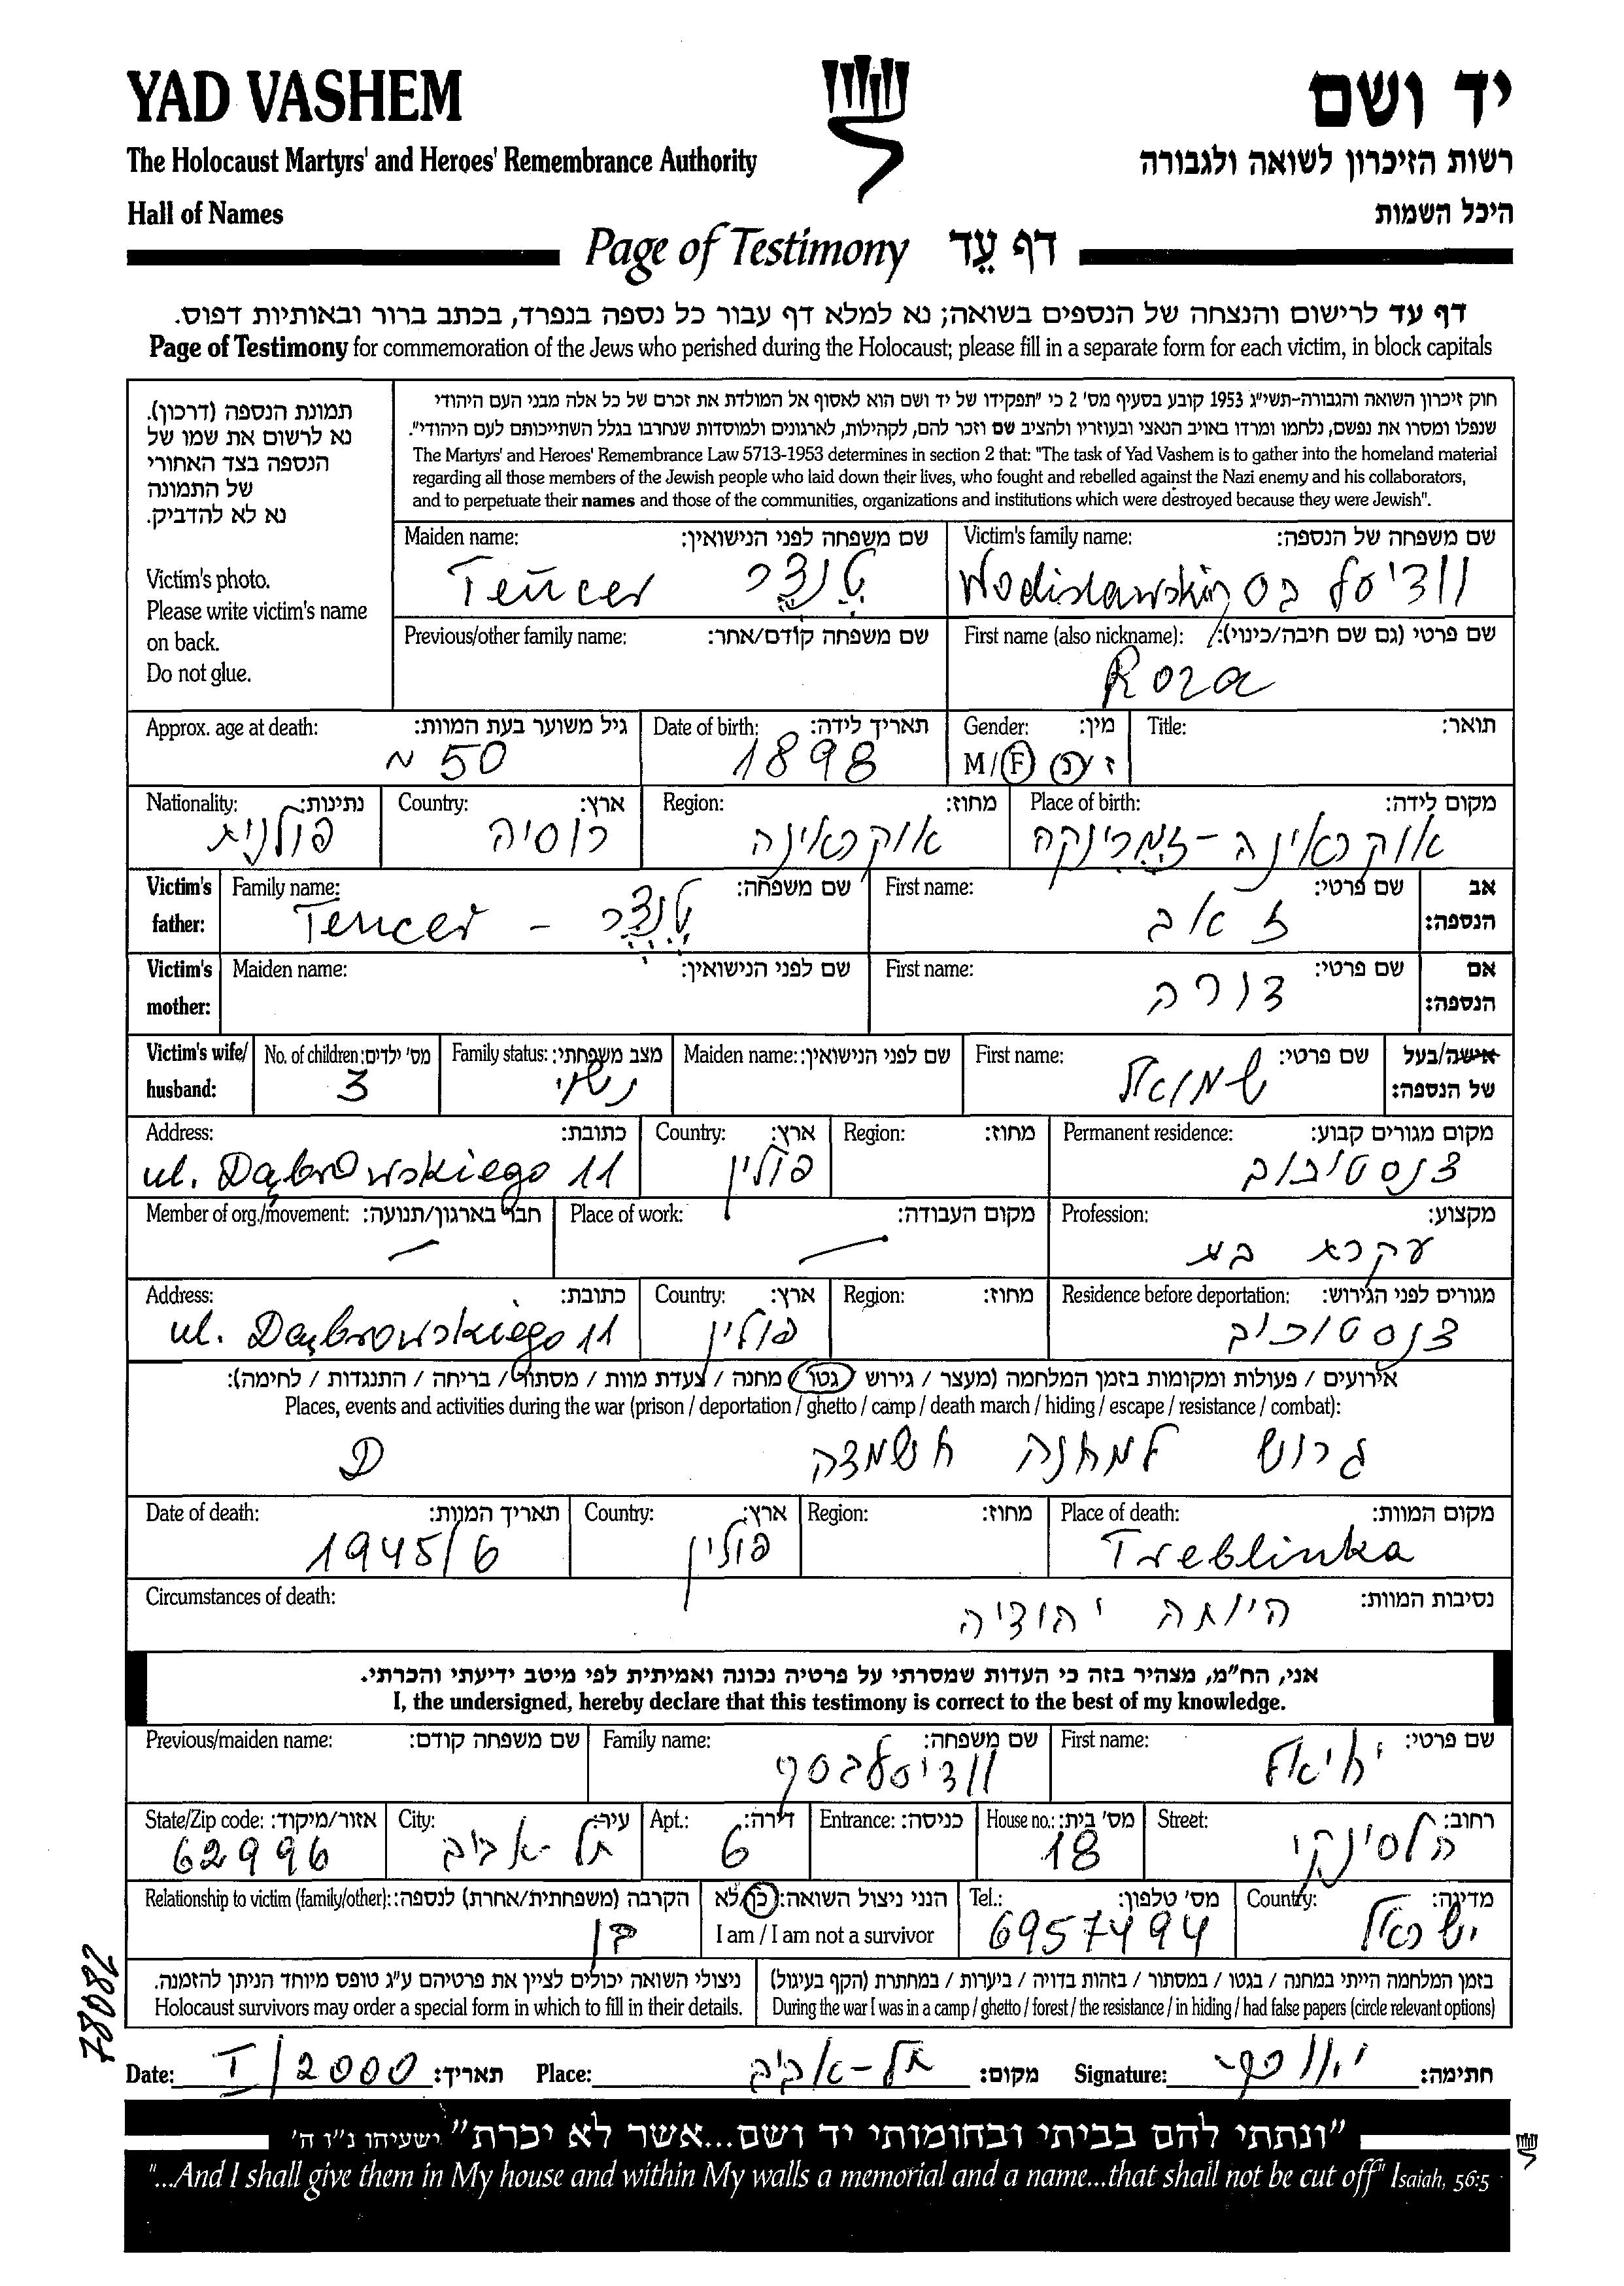 YAD VASHEM
יד ושם
The Holocaust Martyrs' and Heroes' Remembrance Authority
רשות הזיכרון לשואה ולגבורה
Hall of Names
היכל השמות
Page of Testimony דף עֵד
דף עד לרישום והנצחה של הנספים בשואה; נא למלא דף עבור כל נספה בנפרד, בכתב ברור ובאותיות דפוס.
Page of Testimony for commemoration of the Jews who perished during the Holocaust; please fill in a separate form for each victim, in block capitals
תמונת הנספה (דרכון).
נא לרשום את שמו של
הנספה בצד האחורי
של התמונה
נא לא להדביק.
Victim's photo.
Please write victim's name
on back.
Do not glue.
חוק זיכרון השואה והגבורה-תשי"ג 1953 קובע בסעיף מס' 2 כי "תפקידו של יד ושם הוא לאסוף אל המולדת את זכרם של כל אלה מבני העם היהודי
שנפלו ומסרו את נפשם, נלחמו ומרדו באויב הנאצי ובעוזריו ולהציב שם וזכר להם, לקהילות, לארגונים ולמוסדות שנחרבו בגלל השתייכותם לעם היהודי".
The Martyrs' and Heroes' Remembrance Law 5713-1953 determines in section 2 that: "The task of Yad Vashem is to gather into the homeland material
regarding all those members of the Jewish people who laid down their lives, who fought and rebelled against the Nazi enemy and his collaborators,
and to perpetuate their names and those of the communities, organizations and institutions which were destroyed because they were Jewish".
Victim's family name: שם משפחה של הנספה:
Maiden name: שם משפחה לפני הנישואין:
Tencer טֶנְצֶר
First name (also nickname): שם פרטי (גם שם חיבה/כינוי):
Roza
Previous/other family name: שם משפחה קודם/אחר:
Title: תואר:
Gender: מין:
M/F ז/נ
Date of birth: תאריך לידה:
1898
Approx. age at death: גיל משוער בעת המוות:
~ 50
Place of birth: מקום לידה:
אוקראינה - זמרינקה
Region: מחוז:
אוקראינה
Country: ארץ:
רוסיה
Nationality: נתינות:
פולנית
Victim's father: אב הנספה:
First name: שם פרטי:
זאב
Family name: שם משפחה:
Tencer - טֶנְצֶר
Victim's mother: אם הנספה:
First name: שם פרטי:
דורה
Maiden name: שם לפני הנישואין:
Victim's wife/husband: אישה/בעל של הנספה:
First name: שם פרטי:
שמואל
Maiden name: שם לפני הנישואין:
Family status: מצב משפחתי:
נשוי
No. of children: מס' ילדים:
3
Permanent residence: מקום מגורים קבוע:
צנסטוכוב
Region: מחוז:
Country: ארץ:
פולין
Address: כתובת:
ul. Dąbrowskiego 11
Profession: מקצוע:
עקרת בית
Place of work: מקום העבודה:
Member of org./movement: חבר בארגון/תנועה:
Residence before deportation: מגורים לפני הגירוש:
צנסטוכוב
Region: מחוז:
Country: ארץ:
פולין
Address: כתובת:
ul. Dąbrowskiego 11
אירועים / פעולות ומקומות בזמן המלחמה (מעצר / גירוש / גטו / מחנה / צעדת מוות / מסתור / בריחה / התנגדות / לחימה):
Places, events and activities during the war (prison / deportation / ghetto / camp / death march / hiding / escape / resistance / combat):
גרוש למחנה השמדה D
Place of death: מקום המוות:
Treblinka
Region: מחוז:
Country: ארץ:
פולין
Date of death: תאריך המוות:
1945/6
Circumstances of death: נסיבות המוות:
היותה יהודיה
אני, הח"מ, מצהיר בזה כי העדות שמסרתי על פרטיה נכונה ואמיתית לפי מיטב ידיעתי והכרתי.
I, the undersigned, hereby declare that this testimony is correct to the best of my knowledge.
First name: שם פרטי:
יחיאל
Family name: שם משפחה:
וודיסלבסקי
Previous/maiden name: שם משפחה קודם:
Street: רחוב:
הלסינקי
House no.: מס' בית:
18
Entrance: כניסה:
Apt.: דירה:
6
City: עיר:
תל-אביב
State/Zip code: אזור/מיקוד:
62996
Country: מדינה:
ישראל
Tel.: מס' טלפון:
6957494
הנני ניצול השואה: כן/לא
I am / I am not a survivor
Relationship to victim (family/other): הקרבה (משפחתית/אחרת) לנספה:
בן
בזמן המלחמה הייתי במחנה / בגטו / במסתור / בזהות בדויה / ביערות / במחתרת (הקף בעיגול)
During the war I was in a camp / ghetto / forest / the resistance / in hiding / had false papers (circle relevant options)
ניצולי השואה יכולים לציין את פרטיהם ע"ג טופס מיוחד הניתן להזמנה.
Holocaust survivors may order a special form in which to fill in their details.
78082
Date: I/2000 תאריך: Place: תל-אביב מקום: Signature: חתימה:
"ונתתי להם בביתי ובחומותי יד ושם...אשר לא יכרת" ישעיהו נ"ו ה'
"...And I shall give them in My house and within My walls a memorial and a name...that shall not be cut off" Isaiah, 56:5